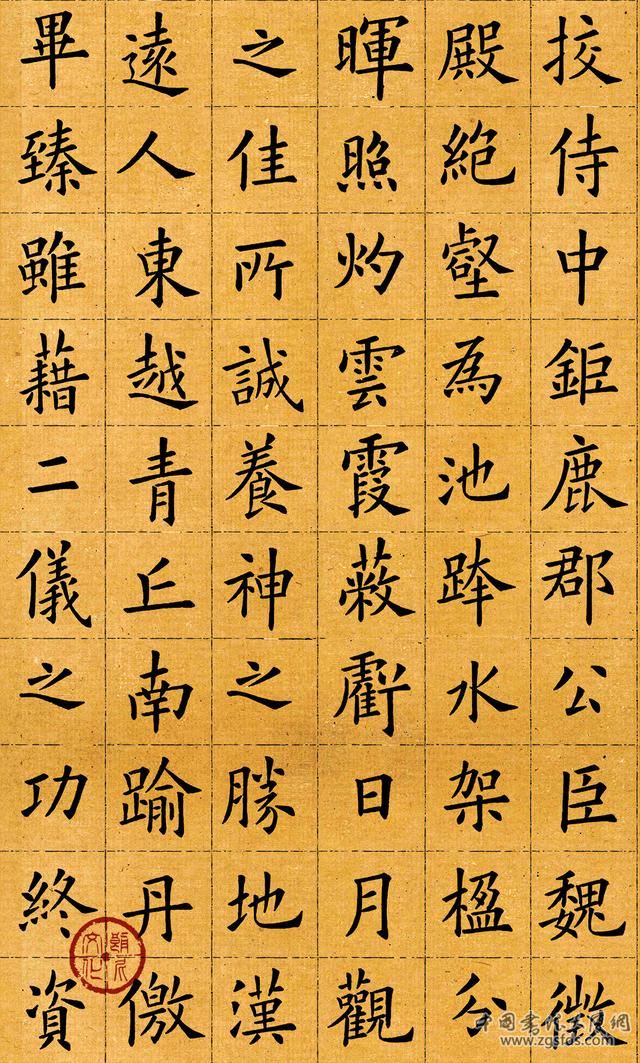 挍侍中鉅鹿郡公臣魏徵
殿絶壑為池跨水架楹分
暉照灼雲霞蔽虧日月觀
之佳所誠養神之勝地漢
遠人東越青丘南踰丹儌
畢臻雖藉二儀之功終資
www.zgsfds.com